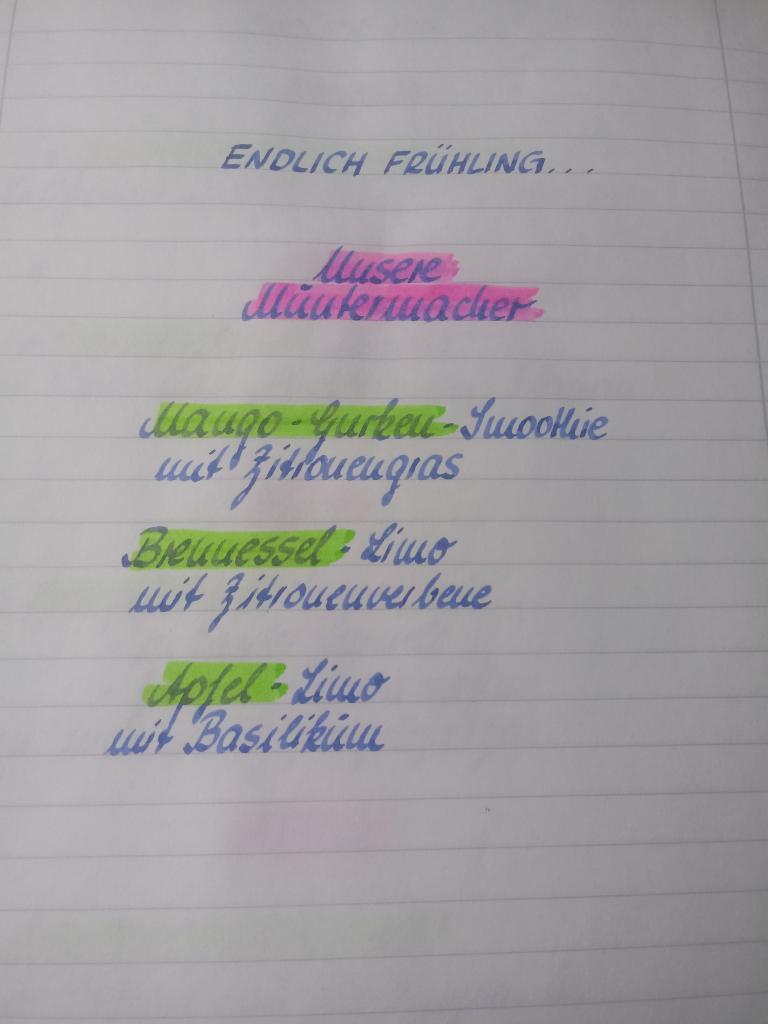 ENDLICH FRÜHLING...
Unsere
Muntermacher
Mango-Gurken-Smoothie
mit Zitronengras
Brennessel-Limo
mit Zitronenverbene
Apfel-Limo
mit Basilikum